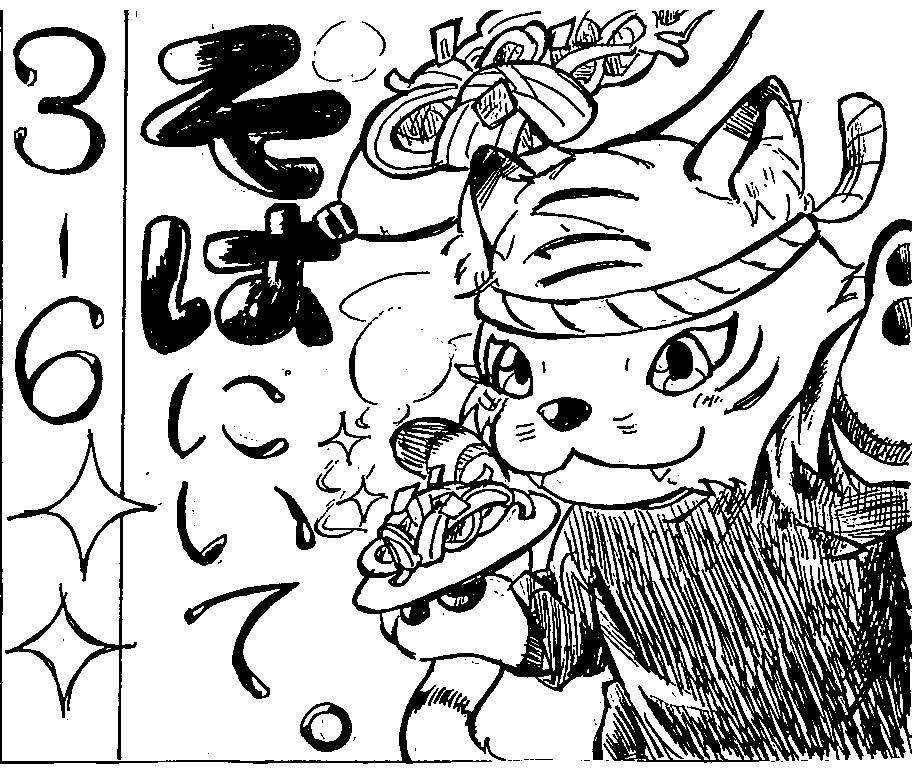 3-6
そばにいて。